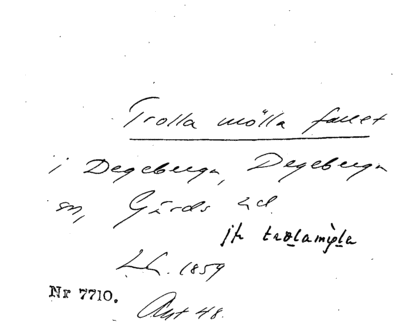 Trolla mölla fallet
i Degeberga, Degeberga
sn, Gärds hd.
jfr trolamỳla
LL. 1859
Nr 7710. Ant 48.